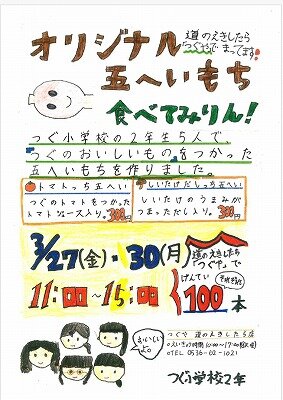 道のえきしたら
オリジナル 「つぐや」で まってます!
五へいもち
食べてみりん!
つぐ小学校の2年生5人で、
つぐのおいしいものをつかった
五へいもちを作りました。
トマトっち五へい
つぐのトマトをつかった
トマトソース入り。300円
しいたけだしっち五へい
しいたけのうまみが
つまっただし入り。300円
3/27(金)・30(月)
11:00~15:00
道のえきしたら
「つぐや」で
げんてい
それぞれ
100本
おいしいよ。
つぐや 道のえきしたら店
TEL 0536-02-1021
つぐ小学校2年